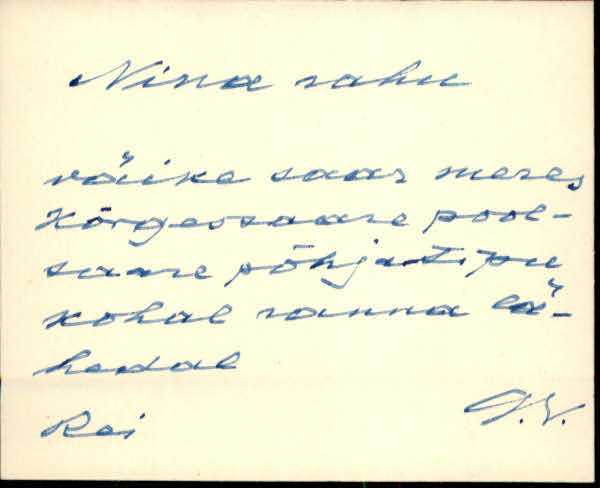 Nina rahu
väike saar meres
Kõrgessaare pool-
saare põhjatipu
kohal ranna lä-
hedal
Rei